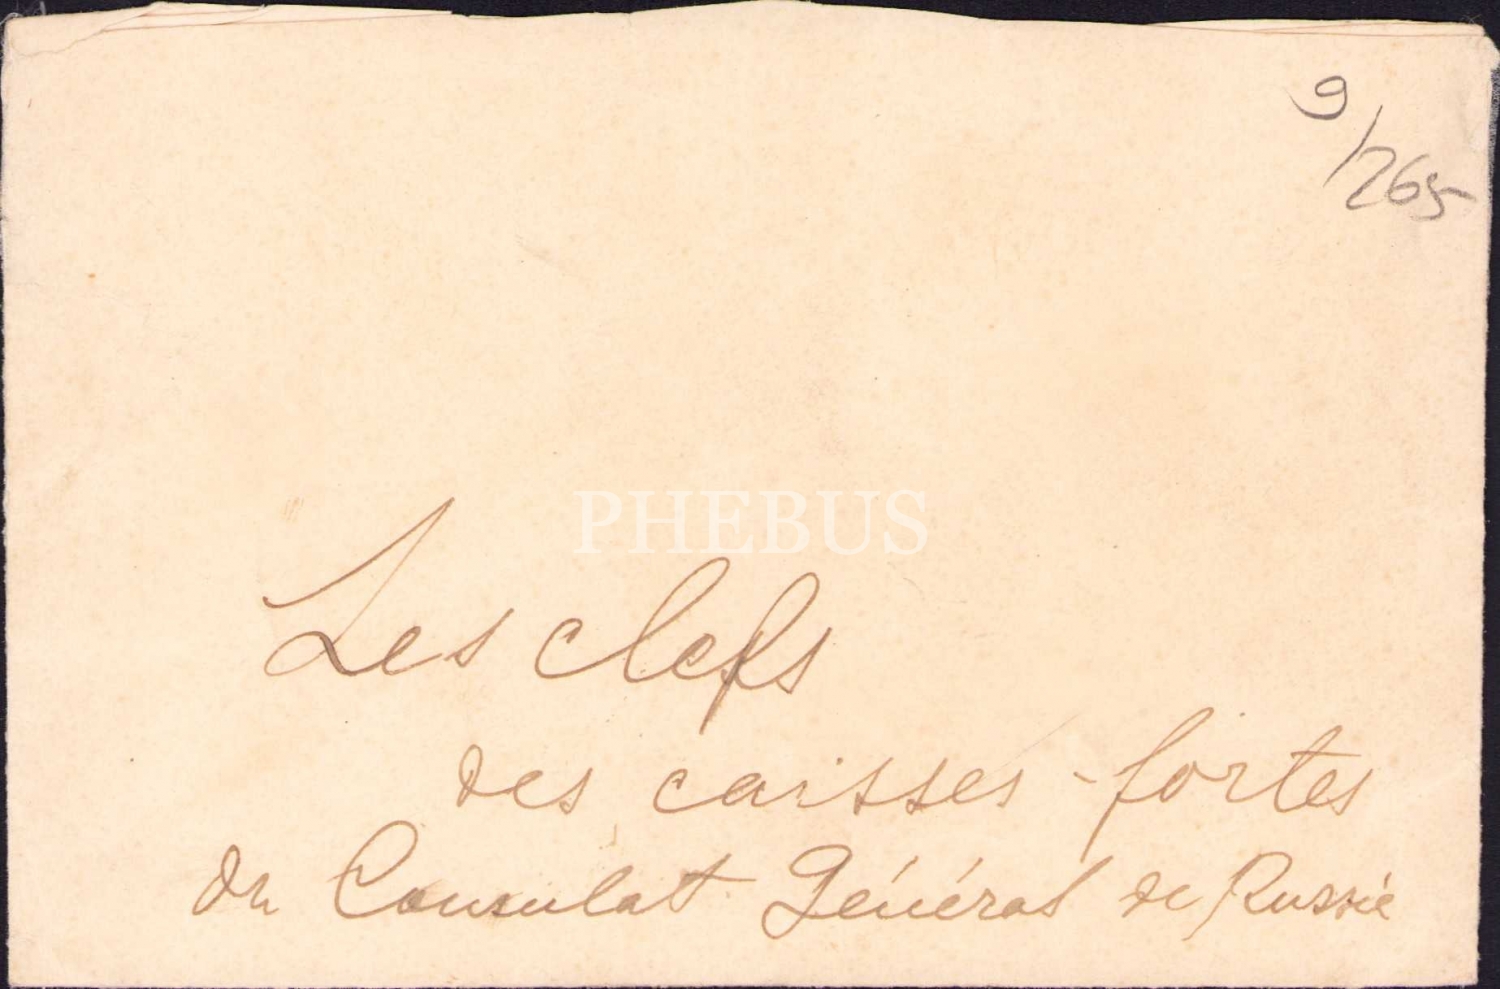 9/265
PHEBUS
Les clefs
des caisses-fortes
du Consulat Général de Russie